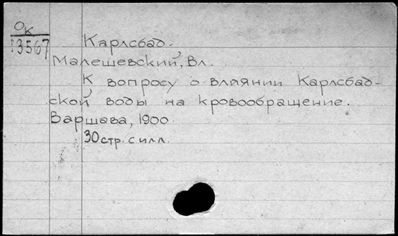 Ок
13567
Карлсбад.
Малешевский, Вл.
К вопросу о влиянии Карлсбад-
ской воды на кровообращение.
Варшава, 1900.
30 стр. с илл.